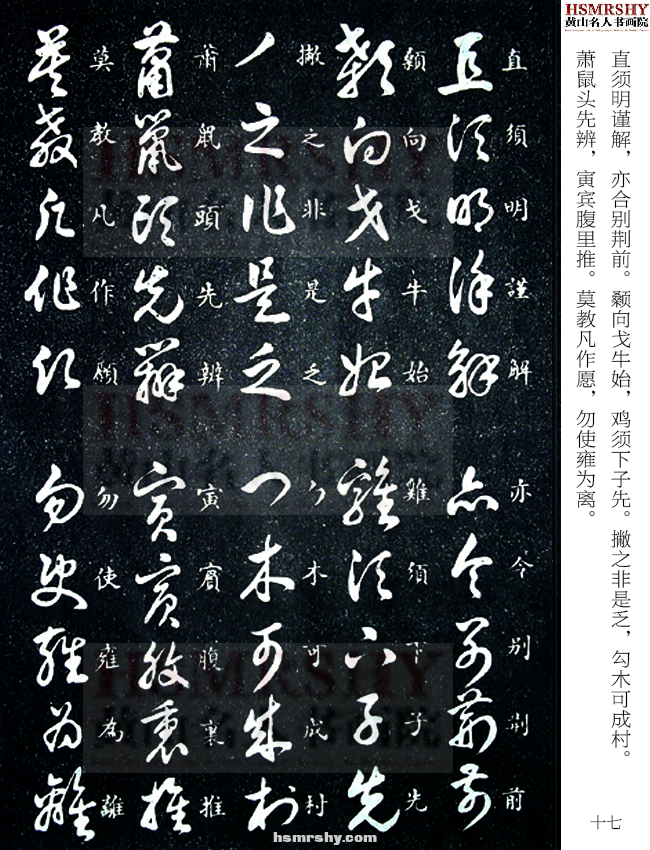 HSMRSHY
黄山名人书画院
直须明谨解，亦合别荆前。颡向戈牛始，鸡须下子先。撇之非是乏，勾木可成村。
萧鼠头先辨，寅宾腹里推。莫教凡作愿，勿使雍为离。
直須明謹解 亦今别荆前
顙向戈牛始 雞須下子先
撇之非是乏 勹木可成村
萧鼠頭先辨 寅賓腹裏推
莫教凡作願 勿使雍為離
十七
hsmrshy.com